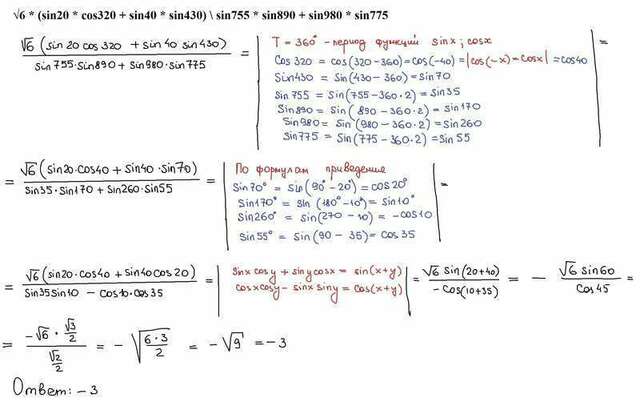 √6 * (sin20 * cos320 + sin40 * sin430) \ sin755 * sin890 + sin980 * sin775
√6 (sin20 cos320 + sin40 sin430) / (sin755·sin890 + sin980·sin775) = | T = 360° - период функций sinx; cosx | =
Cos320 = cos(320-360) = cos(-40) = |cos(-x) = cosx| = cos40
Sin430 = Sin(430-360) = sin70
Sin755 = Sin(755-360·2) = Sin35
Sin890 = Sin(890-360·2) = sin170
Sin980 = Sin(980-360·2) = Sin260
Sin775 = Sin(775-360·2) = Sin55
= √6 (sin20·cos40 + sin40·sin70) / (sin35·sin170 + sin260·sin55) = | По формулам приведения | =
Sin70° = sin(90°-20°) = cos20°
Sin170° = sin(180°-10°) = sin10°
Sin260° = sin(270-10) = -cos10
Sin55° = sin(90-35) = cos35
= √6 (sin20·cos40 + sin40cos20) / (sin35sin10 - cos10·cos35) = | Sinx cosy + siny cosx = sin(x+y) | = √6 sin(20+40) / -cos(10+35) = - √6 sin60 / cos45 =
cosxcosy - sinx siny = cos(x+y)
= -√6 · √3/2 / √2/2 = - √6·3/2 = -√9 = -3
Ответ: -3